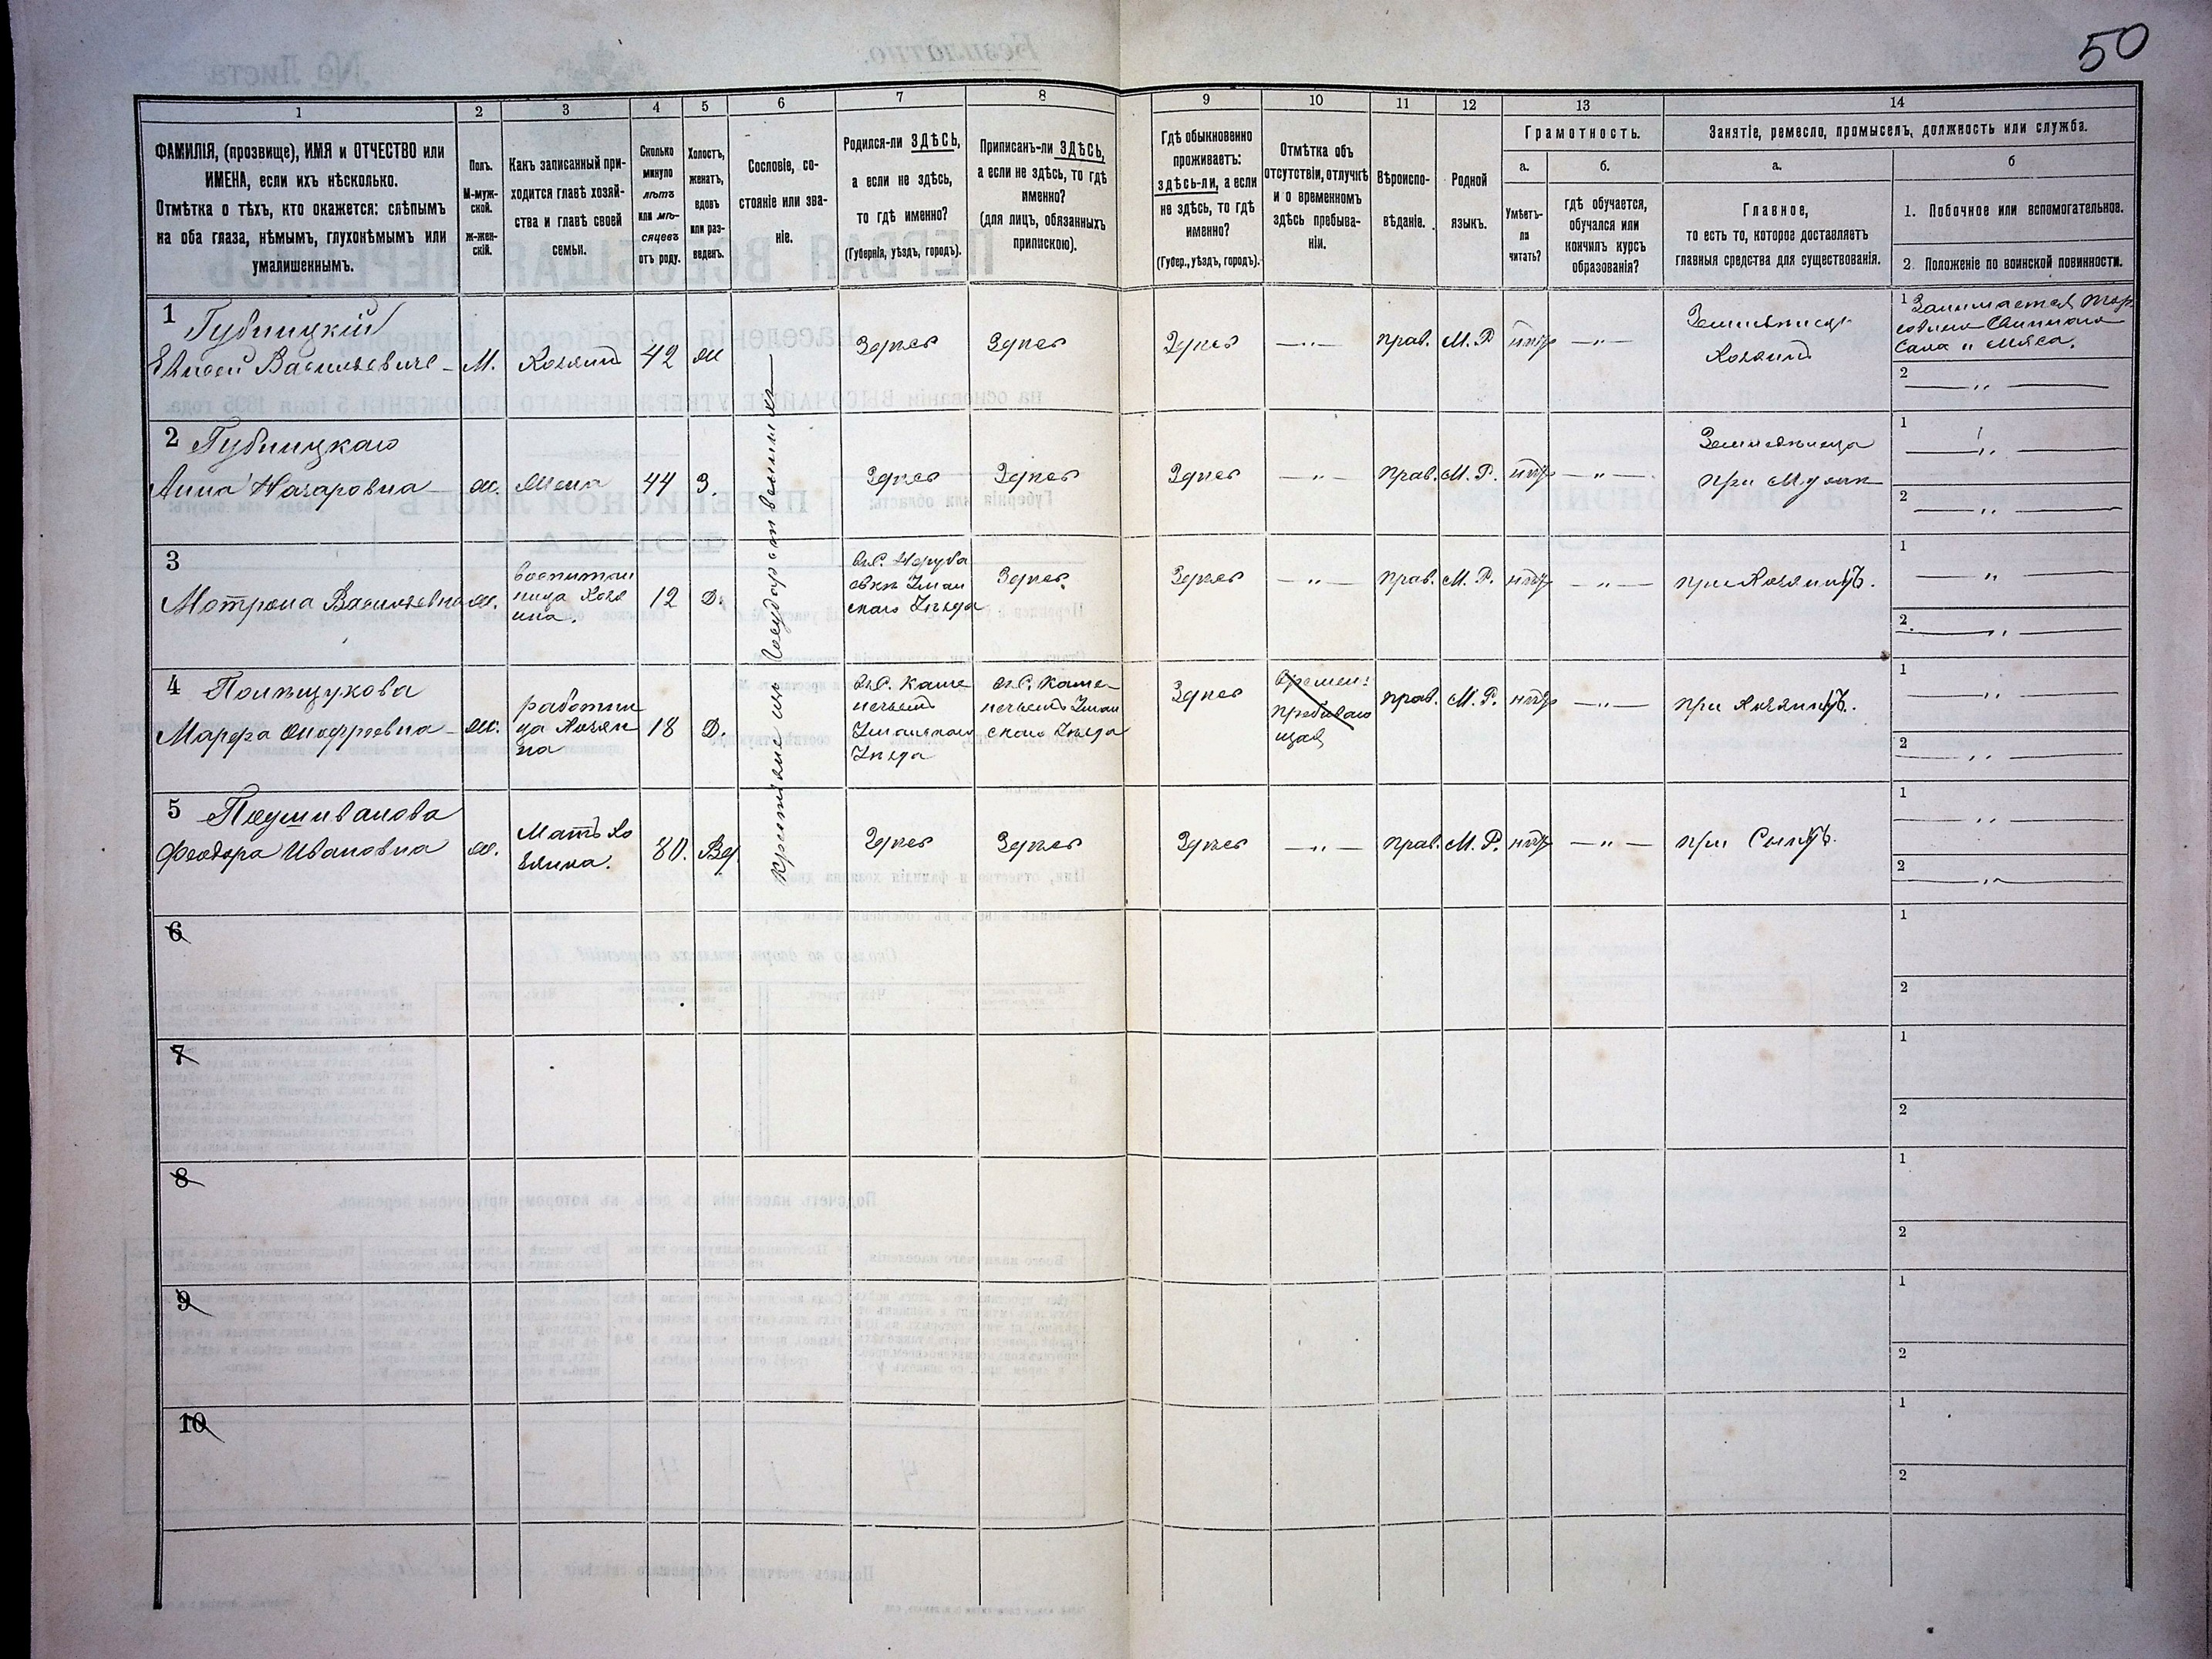 50
1
2
3
4
5
6
7
8
9
10
11
12
13
14
ФАМИЛІЯ, (прозвище), ИМЯ и ОТЧЕСТВО или
ИМЕНА, если ихъ нѣсколько.
Отмѣтка о тѣхъ, кто окажется: слѣпымъ
на оба глаза, нѣмымъ, глухонѣмымъ или
умалишеннымъ.
Полъ.
М-муж-
ской.
ж-жен-
скій.
Какъ записанный при-
ходится главѣ хозяй-
ства и главѣ своей
семьи.
Сколько
минуло
лѣтъ
или мѣ-
сяцевъ
отъ роду.
Холостъ,
женатъ,
вдовъ
или раз-
веденъ.
Сословіе, со-
стояніе или зва-
ніе.
Родился-ли ЗДѢСЬ,
а если не здѣсь,
то гдѣ именно?
(Губернія, уѣздъ, городъ).
Приписанъ-ли ЗДѢСЬ,
а если не здѣсь, то гдѣ
именно?
(для лицъ, обязанныхъ
припискою).
Гдѣ обыкновенно
проживаетъ:
здѣсь-ли, а если
не здѣсь, то гдѣ
именно?
(Губер., уѣздъ, городъ).
Отмѣтка объ
отсутствіи, отлучкѣ
и о временномъ
здѣсь пребыва-
ніи.
Вѣроиспо-
вѣданіе.
Родной
языкъ.
Грамотность.
а.
Умѣетъ-
ли
читать?
б.
гдѣ обучается,
обучался или
кончилъ курсъ
образованія?
Занятіе, ремесло, промыселъ, должность или служба.
а.
Главное,
то есть то, которое доставляетъ
главныя средства для существованія.
б
1. Побочное или вспомогательное.
2. Положеніе по воинской повинности.
1
Губницкій
Евисей Васильевичъ - М. Хозяинъ 42 ж Здѣсь Здѣсь Здѣсь —„— прав. М. Р нѣтъ —„—
Хозяинъ
1 Занимается тор
говлею Свиннаго
Сала и мяса.
2 —„—
2 Губницкаю
Анна Назаровна ж. Жена 44 З. Здѣсь Здѣсь Здѣсь —„— прав. М. Р. нѣтъ —„—
при Мужѣ
1 —„—
2 —„—
3
Мотрона Васильевна ж.
воспитан
ница Хозя
ина.
12 Д.
Здѣсь Здѣсь —„— прав. М. Р. нѣтъ —„— при Хозяинѣ.
1 —„—
2 —„—
4 Полѣщукова
Марѳа Онофреевна ж.
работни
ца Хозяи
на
18 Д.
вкС. Каме
нечьемъ
Уманскаго
Уѣзда
вкС. Каме-
нечьемъ Уман
скаго Уѣзда
Здѣсь
Времен:
пребываю
щая
прав. М. Р. нѣтъ —„— при Хозяинѣ.
1 —„—
2 —„—
5
Ѳеодора Ивановна ж.
Мать Хо
зяина.
80. Вд Здѣсь Здѣсь Здѣсь —„— прав. М. Р. нѣтъ —„— при Сынѣ.
1 —„—
2 —„—
Крестьяне изъ Государственныхъ
6
1
2
7
1
2
8
1
2
9
1
2
10
1
2